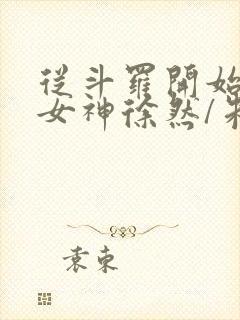 從斗羅開始
女神徐然/朱
袁束